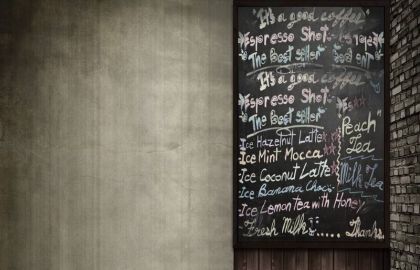 "It's a good coffee"
Espresso Shot
The Best Seller
"It's a good coffee"
Espresso Shot
The Best Seller
Ice Hazelnut Latte
Ice Mint Mocca
Ice Coconut Latte
Ice Banana Choc
Ice Lemon tea with Honey
Fresh Milk..... Thanks
Peach"
Tea
Milk Tea